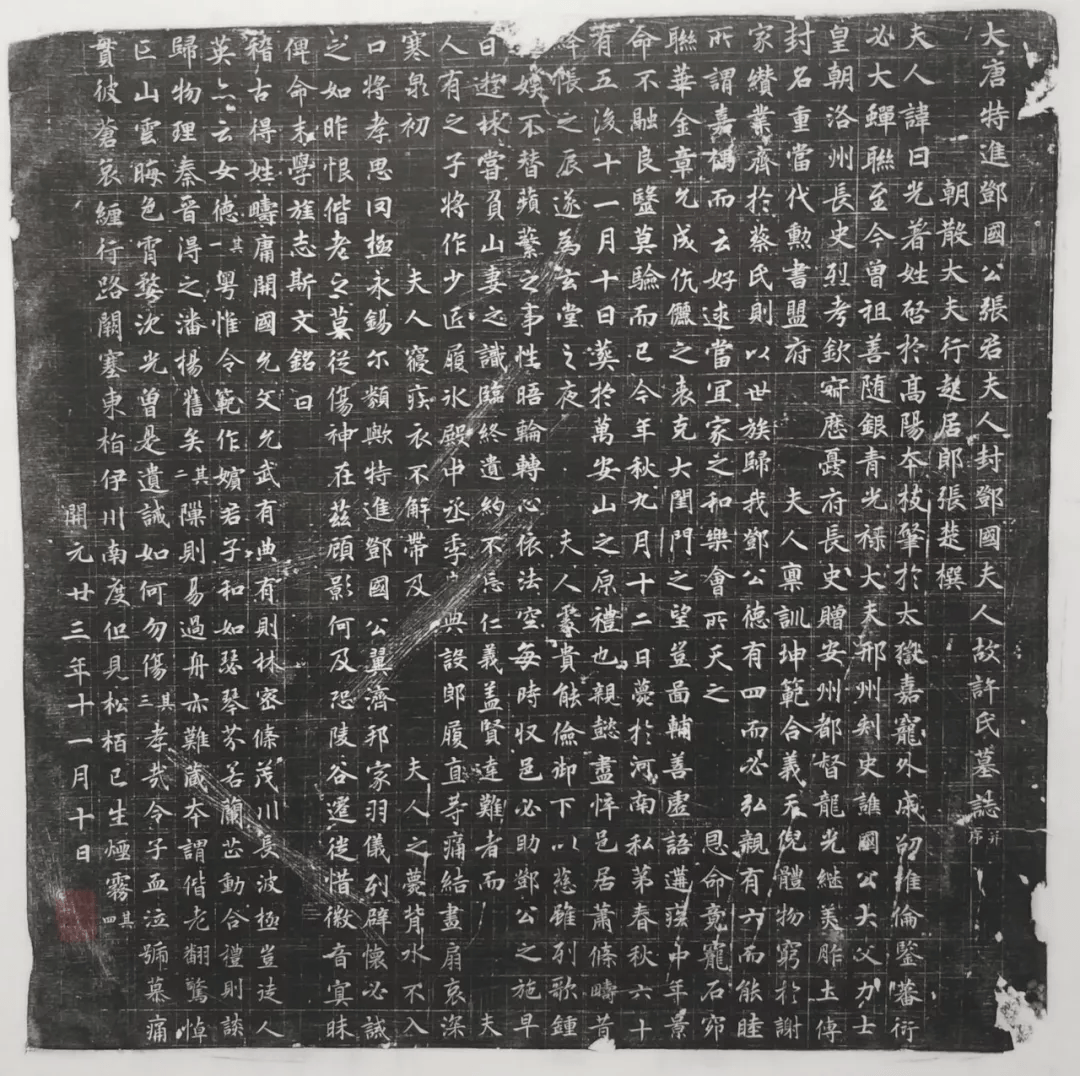 大唐特進鄧國公張君夫人封鄧國夫人故許氏墓誌并序
朝散大夫行起居郎張楚撰
夫人諱日光著姓啓於高陽本枝肇於太嶽嘉寵外戚劭惟倫鑒蕃衍
必大蟬聯至今曾祖善隨銀青光祿大夫邢州刺史譙國公大父力士
皇朝洛州長史烈考欽寂應憂府長史贈安州都督龍光繼美胙土傳
封名重當代勲書盟府 夫人稟訓坤範合義天倪體物窮於謝
家纘業齊於蔡氏則以世族歸我鄧公德有四而必弘親有六而能睦
所謂嘉耦而云好逑當宜家之和樂會所天之 恩命竟寵石窌
聯華金章允成伉儷之表克大閨門之望豈啚輔善虛語遘疾中年景
命不融良毉莫驗而已今年秋九月十二日薨於河南私第春秋六十
有五後十一月十日葬於萬安山之原禮也親懿盡悴邑居蕭條疇昔
帳之辰遂為玄堂之夜 夫人處貴能儉御下以慈雖列歌鍾
娛不替蘋蘩之事性晤輪轉心依法空每時収邑必助鄧公之施早
日遊林嘗負山妻之識臨終遺約不忘仁義盖賢達難者而 夫
人有之子將作少匠履冰殿中丞季良典設郎履直等痛結畫扇哀深
寒泉初 夫人寢疾衣不解帶及 夫人之薨背水不入
口將孝思罔極永錫尔類歟特進鄧國公翼濟邦家羽儀列辟懷必誠
之如昨恨偕老之莫從傷神在茲顧影何及恐陵谷遷徙惜徽音寘昧
俾命末學旌志斯文銘曰
稽古得姓疇庸開國允文允武有典有則林密條茂川長波極豈徒人
英亦云女德其一粵惟令範作嬪君子和如瑟琴芬若蘭芷動合禮則談
歸物理秦晉得之潘楊舊矣其二隟則易過舟亦難藏本謂偕老翻驚悼
亡山雲晦色宵婺沈光曾是遺誡如何勿傷其三孝哉令子血泣號慕痛
貫彼蒼哀纏行路闕塞東栢伊川南度但見松栢已生煙霧其四
開元廿三年十一月十日